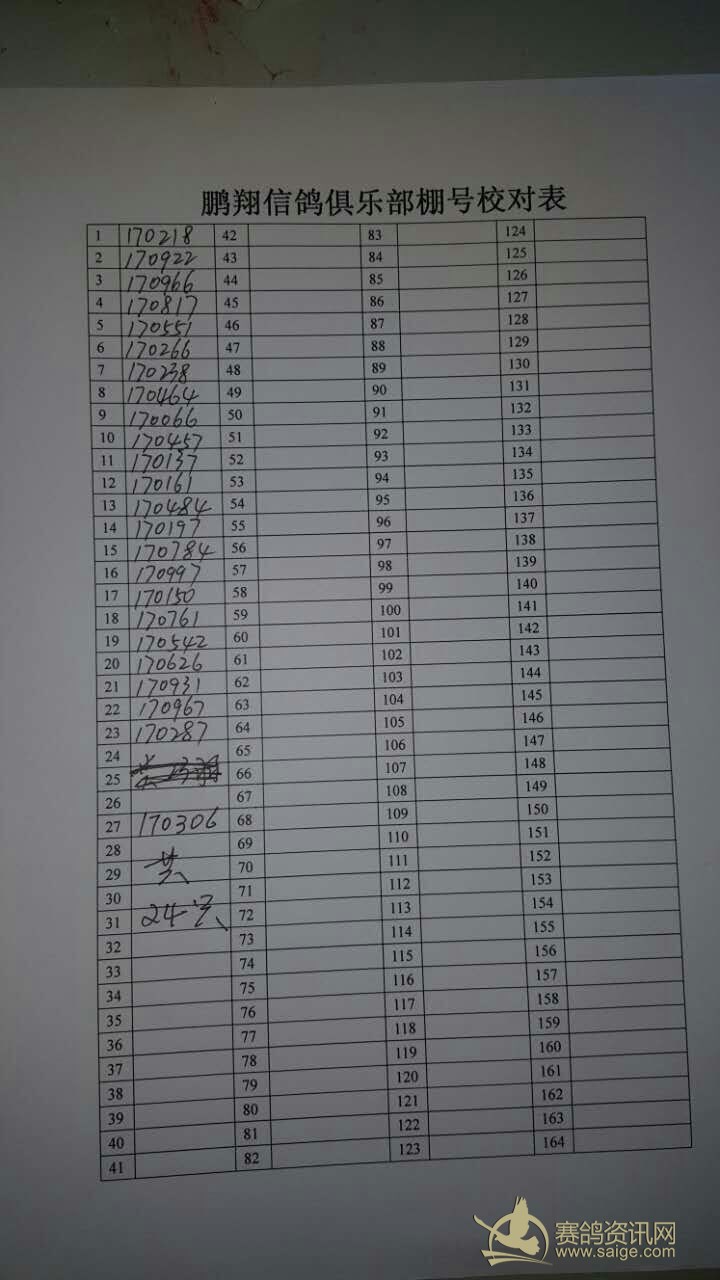 鹏翔信鸽俱乐部棚号校对表
1 170218 42 83 124
2 170922 43 84 125
3 170966 44 85 126
4 170817 45 86 127
5 170551 46 87 128
6 170266 47 88 129
7 170238 48 89 130
8 170464 49 90 131
9 170066 50 91 132
10 170457 51 92 133
11 170137 52 93 134
12 170161 53 94 135
13 170484 54 95 136
14 170197 55 96 137
15 170784 56 97 138
16 170997 57 98 139
17 170150 58 99 140
18 170761 59 100 141
19 170542 60 101 142
20 170626 61 102 143
21 170931 62 103 144
22 170967 63 104 145
23 170287 64 105 146
24 65 106 147
25 66 107 148
26 67 108 149
27 170306 68 109 150
28 69 110 151
29 共 70 111 152
30 71 112 153
31 24 72 113 154
32 73 114 155
33 74 115 156
34 75 116 157
35 76 117 158
36 77 118 159
37 78 119 160
38 79 120 161
39 80 121 162
40 81 122 163
41 82 123 164
赛鸽资讯网
www.saige.com